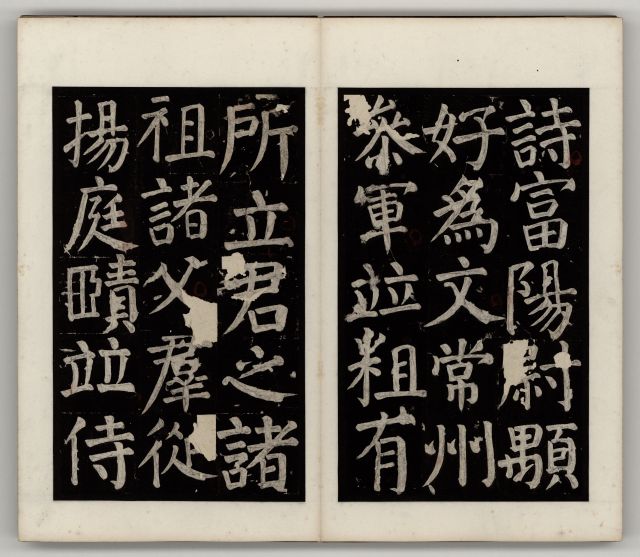 詩富陽尉顒
好爲文常州
叅軍竝粗有
所立君之諸
祖諸父羣從
揚庭賾竝侍